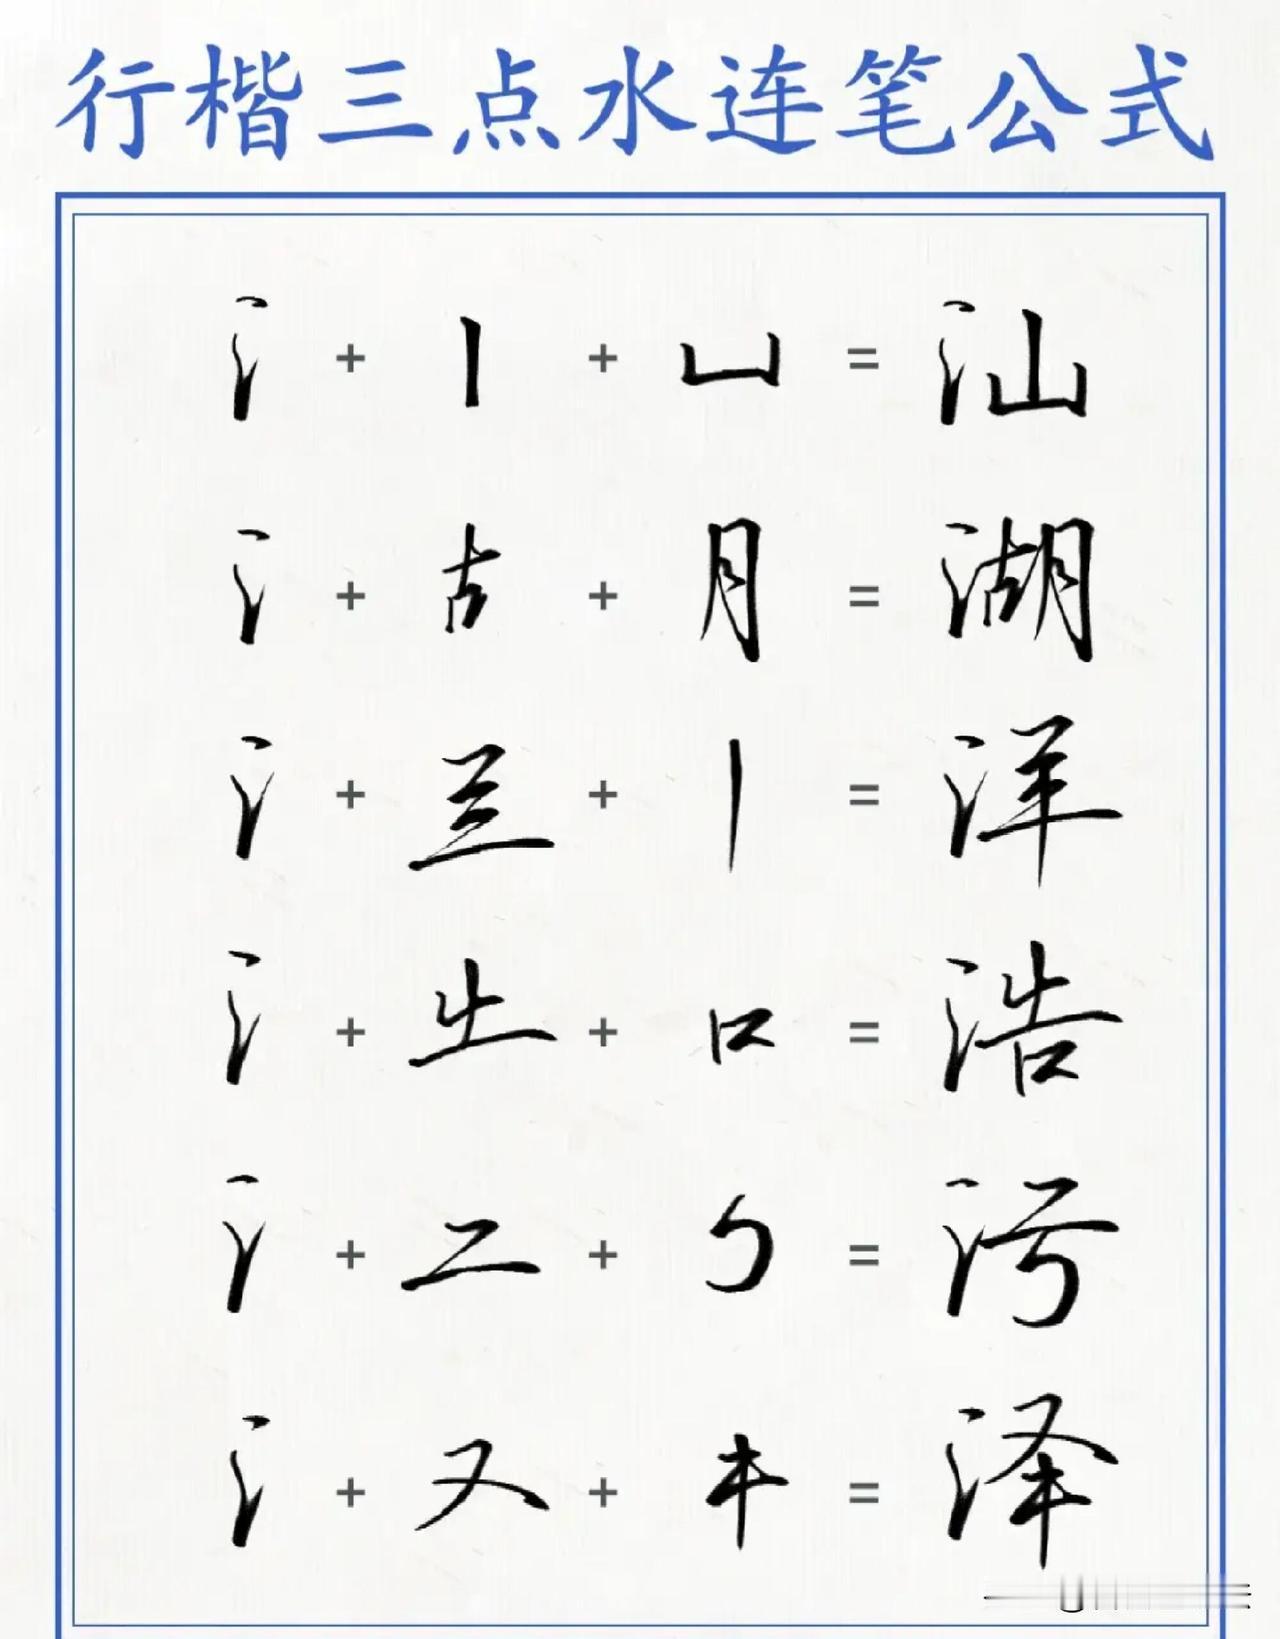 行楷三点水连笔公式
氵 + 丨 + 凵 = 汕
氵 + 古 + 月 = 湖
氵 + 𦍌 + 丨 = 洋
氵 + 𠂒 + 口 = 浩
氵 + 二 + ㇉ = 污
氵 + 又 + 㐄 = 泽